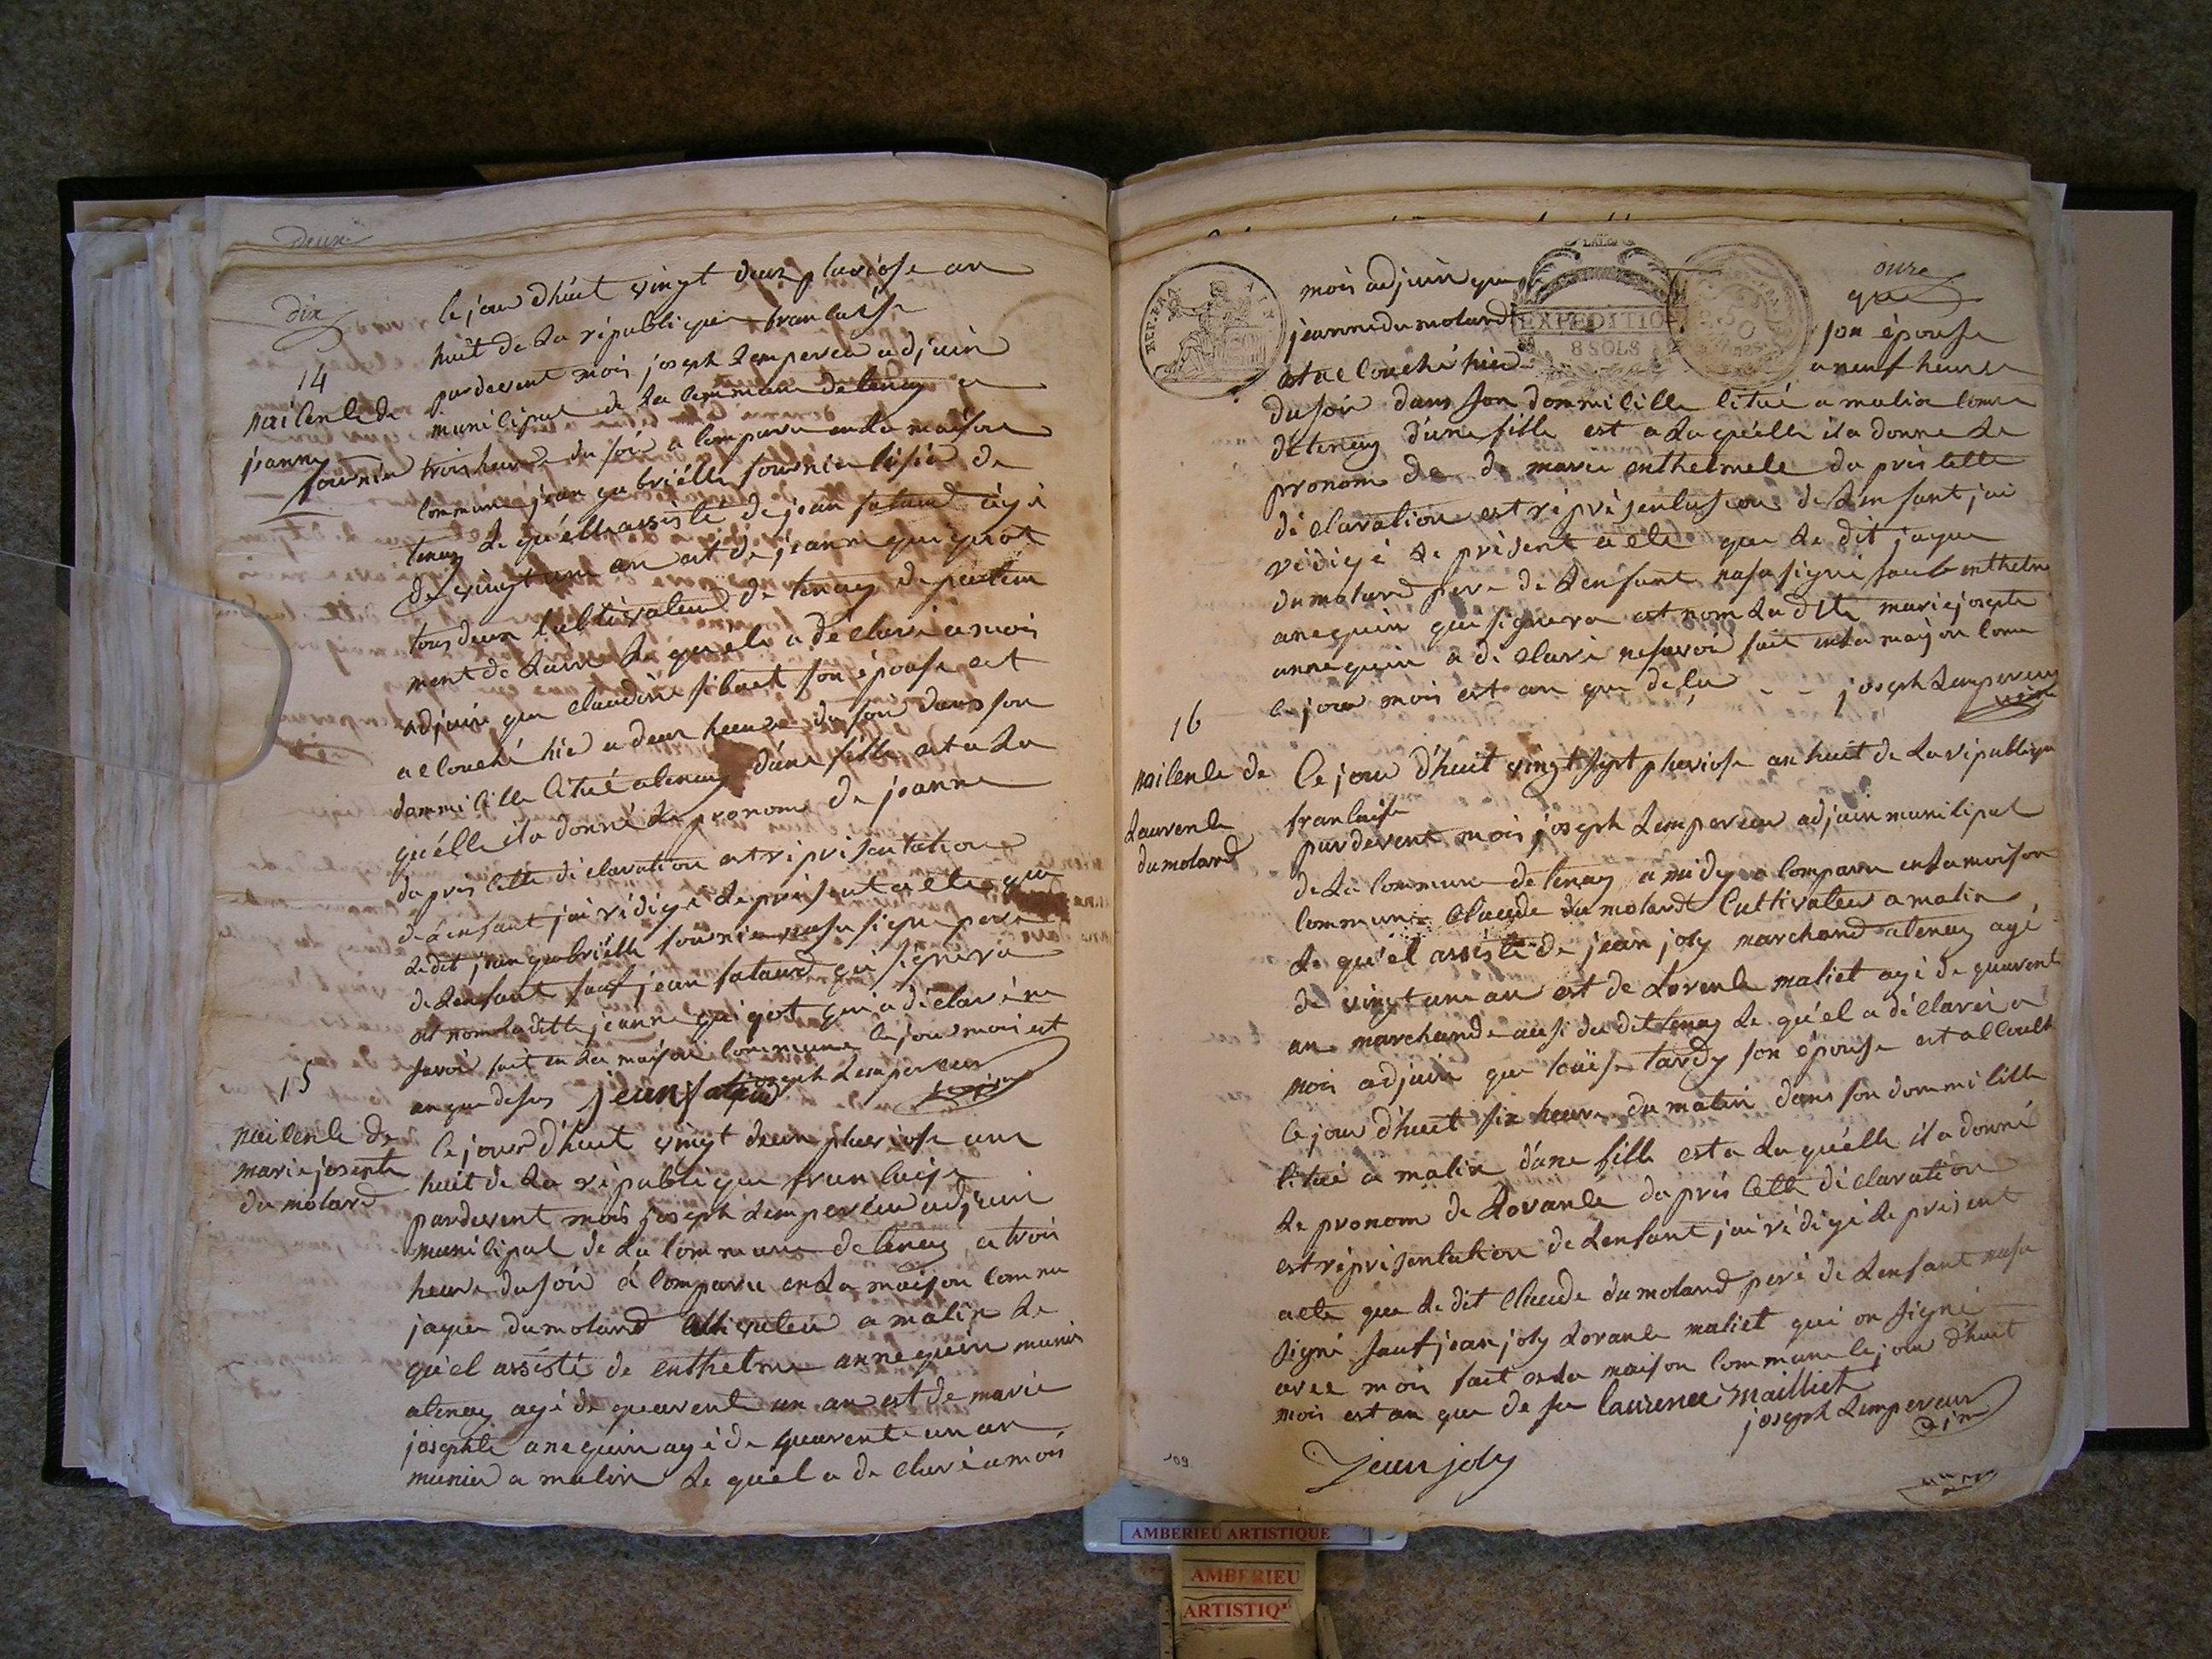 deux
dix
le jour d'huit vingt deux pluviose an
huit de la république francaise
14
naisence de
jeanne
fournier
pardevent mois joseph Lempereur adjuin
municipal de la commune de tenay a
trois heure du soir a comparu en la maison
commune jean gabriélle fournier
tenay le qu'élle assisté de jean salaud âgé
de vingt une an est de jeanne guigot
tous deux cultivateur de tenay departem
ment de Lain le qu'éle a déclaré a mois
adjuin que claudine sibuet son épouse est
accouché hier a deux heure du soir dans son
dommicille citué a tenay d'une fille est a La
qu'élle il a donné Le pronom de jeanne
dapres cette déclaration est réprisentation
de Lensant jai rédigé Le présent acte que
Le dit jean gabriélle fournier na su signe pere
de Lensant sauf jean salaud qui signera
est nom la ditte jeanne guigot qui a déclaré ne
savoir fait en La maison commune le jour mois est
an que desus jean salaud joseph Lempereur
15
naisence de
marie josephte
dumolard
le jour d'huit vingt deux pluviose ant
huit de La république francaise
pardevent mois joseph Lempereur adjuin
municipal de La commune de tenay a trois
heure du soir a comparu en La maison commu
jaque dumolard cultivateur a malix Le
qu'el assisté de enthelme annequin munie
a tenay agé de quarente un an est de marie
josephte anequin agé de quarente un an
munier a malix Le qu'el a declaré a mois
onze
REP. FRA
EXPEDITION
8 SOLS
mois adjuin que que
jeanne dumolard son épouse
est accouché hier a neuf heure
du soir dans son dommicille citué a malix comu
de tenay d'une fille est a La qu'elle il a donne Le
pronom de de marie enthelmete dapres cette
déclaration est réprésentasion de Lensant jai
rédigé Le présent acte que Le dit jaque
dumolard pere de Lensant na su signé sauf enthelme
anequin qui signera est nom La dite marie josephte
annequin a déclaré ne savoir fait en La maison comu
le jour mois est an que desu - - joseph Lempereur
16
naisence de
Laurence
dumolard
Le jour d'huit vingt sept pluviose an huit de La république
francaise
pardevent mois joseph Lempereur adjuin municipal
de La commune de tenay a midy a comparu en La maison
commune claude dumolard cultivateur a malix
Le qu'el assisté de jean joly marchand a tenay agé
de vingt une an est de Lorence maliet agé de quarente
an marchande ausi du dit tenay Le qu'el a déclaré a
mois adjuin que Louise tardy son épouse est accouché
ce jour d'huit six heure du matin dans son dommicille
citué a malix d'une fille est a La qu'élle il a donné
Le pronom de Lorance dapres cette déclaration
est réprisentation de Lensant jai rédigé Le present
acte que Le dit claude dumolard peré de Lensant na su
signé sauf jean joly Lorance maliet qui on signé
avec mois fait en La maison commune le jour d'huit
mois est an que desu laurence mailliet
joseph Lempereur
Jean joly
109
AMBERIEU ARTISTIQUE
AMBERIEU
ARTISTIQ